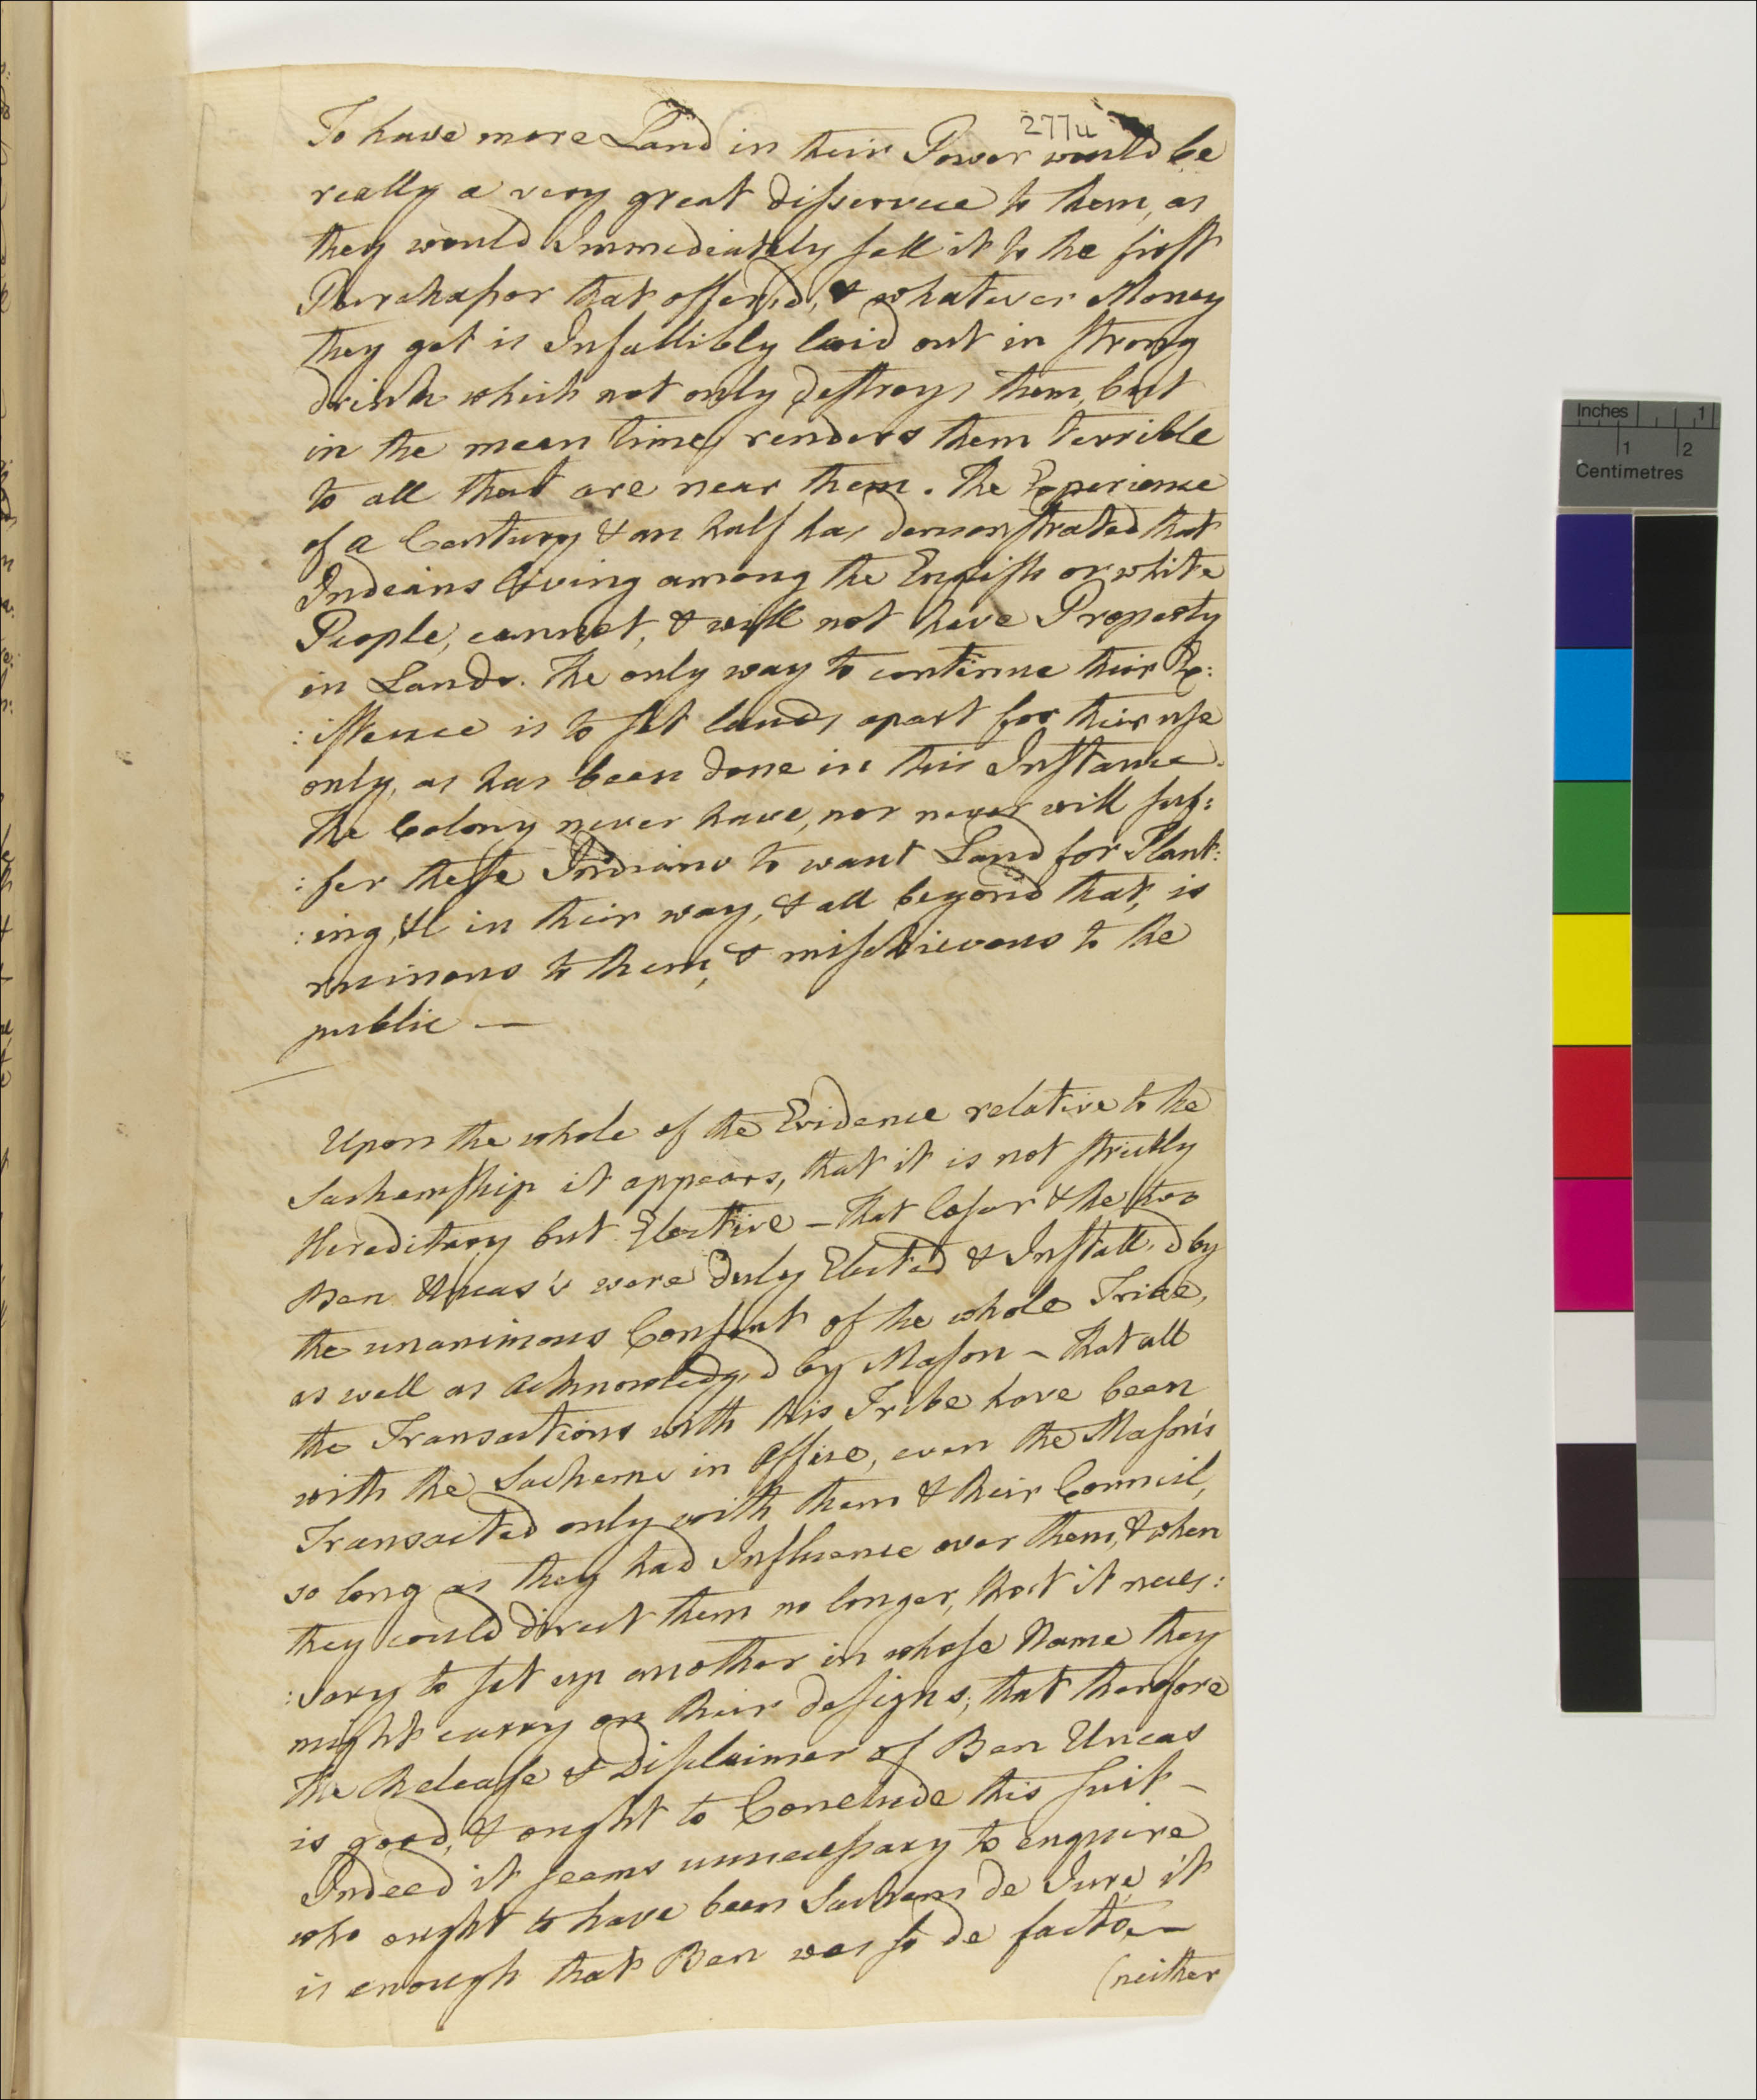 277u
To have more Land in their Power would be
really a very great disservice to them, as
they would Immediately sell it to the first
Purchasor that offer'd, & whatever Money
they get is Infallibly laid out in strong
drink which not only destroys them, but
in the mean time renders them terrible
to all that are near them. The Experience
of a Century & an half has demonstrated that
Indeans living among the English or white
People, cannot, & will not have Property
in Lands. The only way to continue their Ex:
:istence is to set lands apart for their use
only, as has been done in this Instance.
The Colony never have, nor never will suf:
:fer these Indians to want Land for Plant:
:ing, &c in their way, & all beyond that, is
ruinous to them, & mischievous to the
public —
Upon the whole of the Evidence relative to the
Sachemship it appears, that it is not strictly
Hereditary but Elective — That Cesar & the two
Ben Uncas's were duly Elected & Install'd by
the unanimous Consent of the whole Tribe,
as well as Acknowledg'd by Mason — That all
the Transactions with this Tribe have been
with the Sachems in Office, even the Mason's
Transacted only with them & their Council,
so long as they had Influence over them, & when
they could direct them no longer, thot it neces:
:sary to set up another in whose Name they
might carry on their designs; that therefore
the Release & Disclaimer of Ben Uncas
is good, & ought to Conclude this suit —
Indeed it seems unnecessary to enquire
who ought to have been Sachem de Jure, it
is enough that Ben was so de facto, —
(neither
Inches 1
1 2
Centimetres